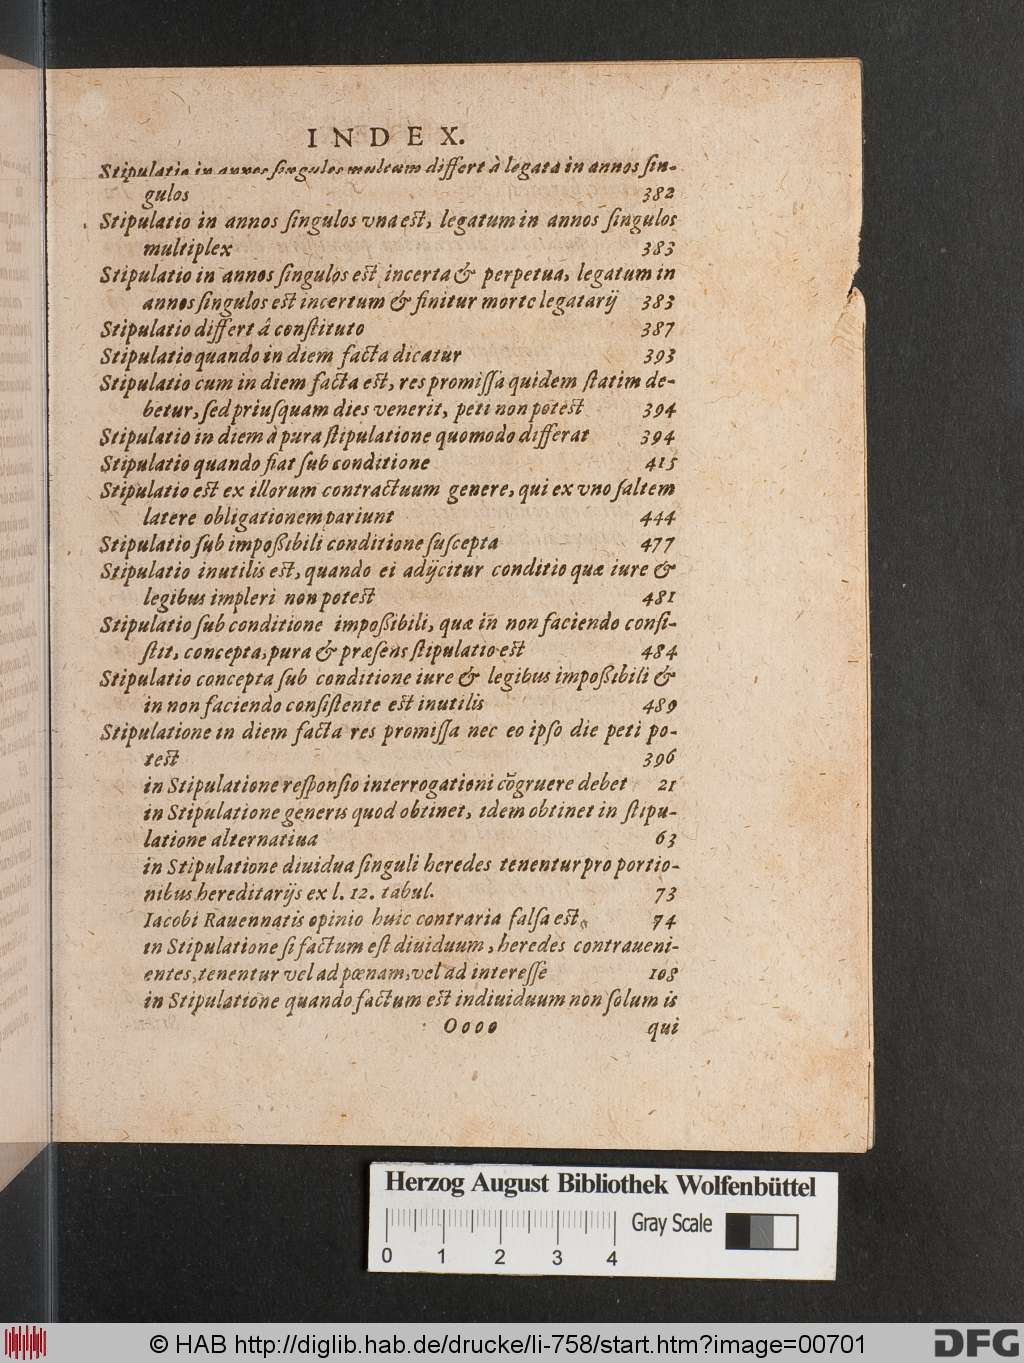 INDEX.
Stipulatio in annos ſingulos multum differt à legata in annos ſin-
gulos 382
Stipulatio in annos ſingulos vna est, legatum in annos ſingulos
multiplex 383
Stipulatio in annos ſingulos est incerta & perpetua, legatum in
annos ſingulos est incertum & finitur morte legatarij 383
Stipulatio differt â conſtituto 387
Stipulatio quando in diem facta dicatur 393
Stipulatio cum in diem facta est, res promiſſa quidem ſtatim de-
betur, ſed priuſquam dies venerit, peti non potest 394
Stipulatio in diem à pura ſtipulatione quomodo differat 394
Stipulatio quando fiat ſub conditione 415
Stipulatio est ex illorum contractuum genere, qui ex vno ſaltem
latere obligationem pariunt 444
Stipulatio ſub impoßibili conditione ſuſcepta 477
Stipulatio inutilis est, quando ei adijcitur conditio quæ iure &
legibus impleri non potest 481
Stipulatio ſub conditione impoßibili, quæ in non faciendo conſi-
ſtit, concepta, pura & præſens ſtipulatio est 484
Stipulatio concepta ſub conditione iure & legibus impoßibili &
in non faciendo conſiſtente est inutilis 489
Stipulatione in diem facta res promiſſa nec eo ipſo die peti po-
test 396
in Stipulatione reſponſio interrogationi cõgruere debet 21
in Stipulatione generis quod obtinet, idem obtinet in ſtipu-
latione alternatiua 63
in Stipulatione diuidua ſinguli heredes tenentur pro portio-
nibus hereditarijs ex l. 12. tabul. 73
Iacobi Rauennatis opinio huic contraria falſa est. 74
in Stipulatione ſi factum eſt diuiduum, heredes contraueni-
entes, tenentur vel ad pœnam, vel ad intereſſe 108
in Stipulatione quando factum est indiuiduum non ſolum is
Oooo qui
Herzog August Bibliothek Wolfenbüttel
Gray Scale
0 1 2 3 4
© HAB http://diglib.hab.de/drucke/li-758/start.htm?image=00701
DFG